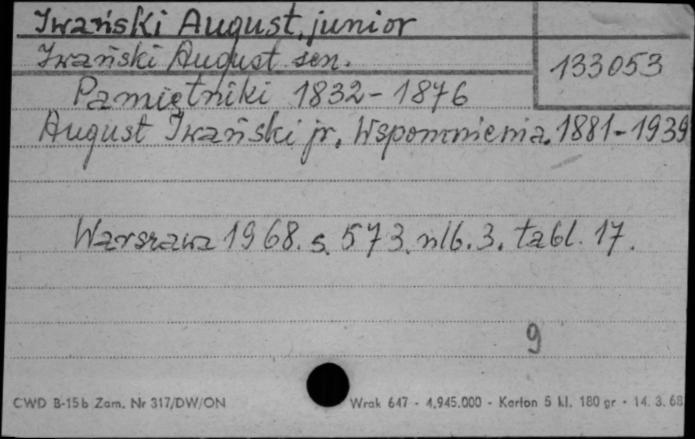 Iwański August, junior
Iwański August sen.
133053
Pamiętniki 1832-1876
August Iwański jr. Wspomnienia. 1881-1939
Warszawa 1968. s. 573. nlb. 3. tabl. 17.
9
CWD B-15b Zam. Nr 317/DW/ON
Wrak 647 - 4.945.000 - Karton 5 kl. 180 gr - 14. 3. 68